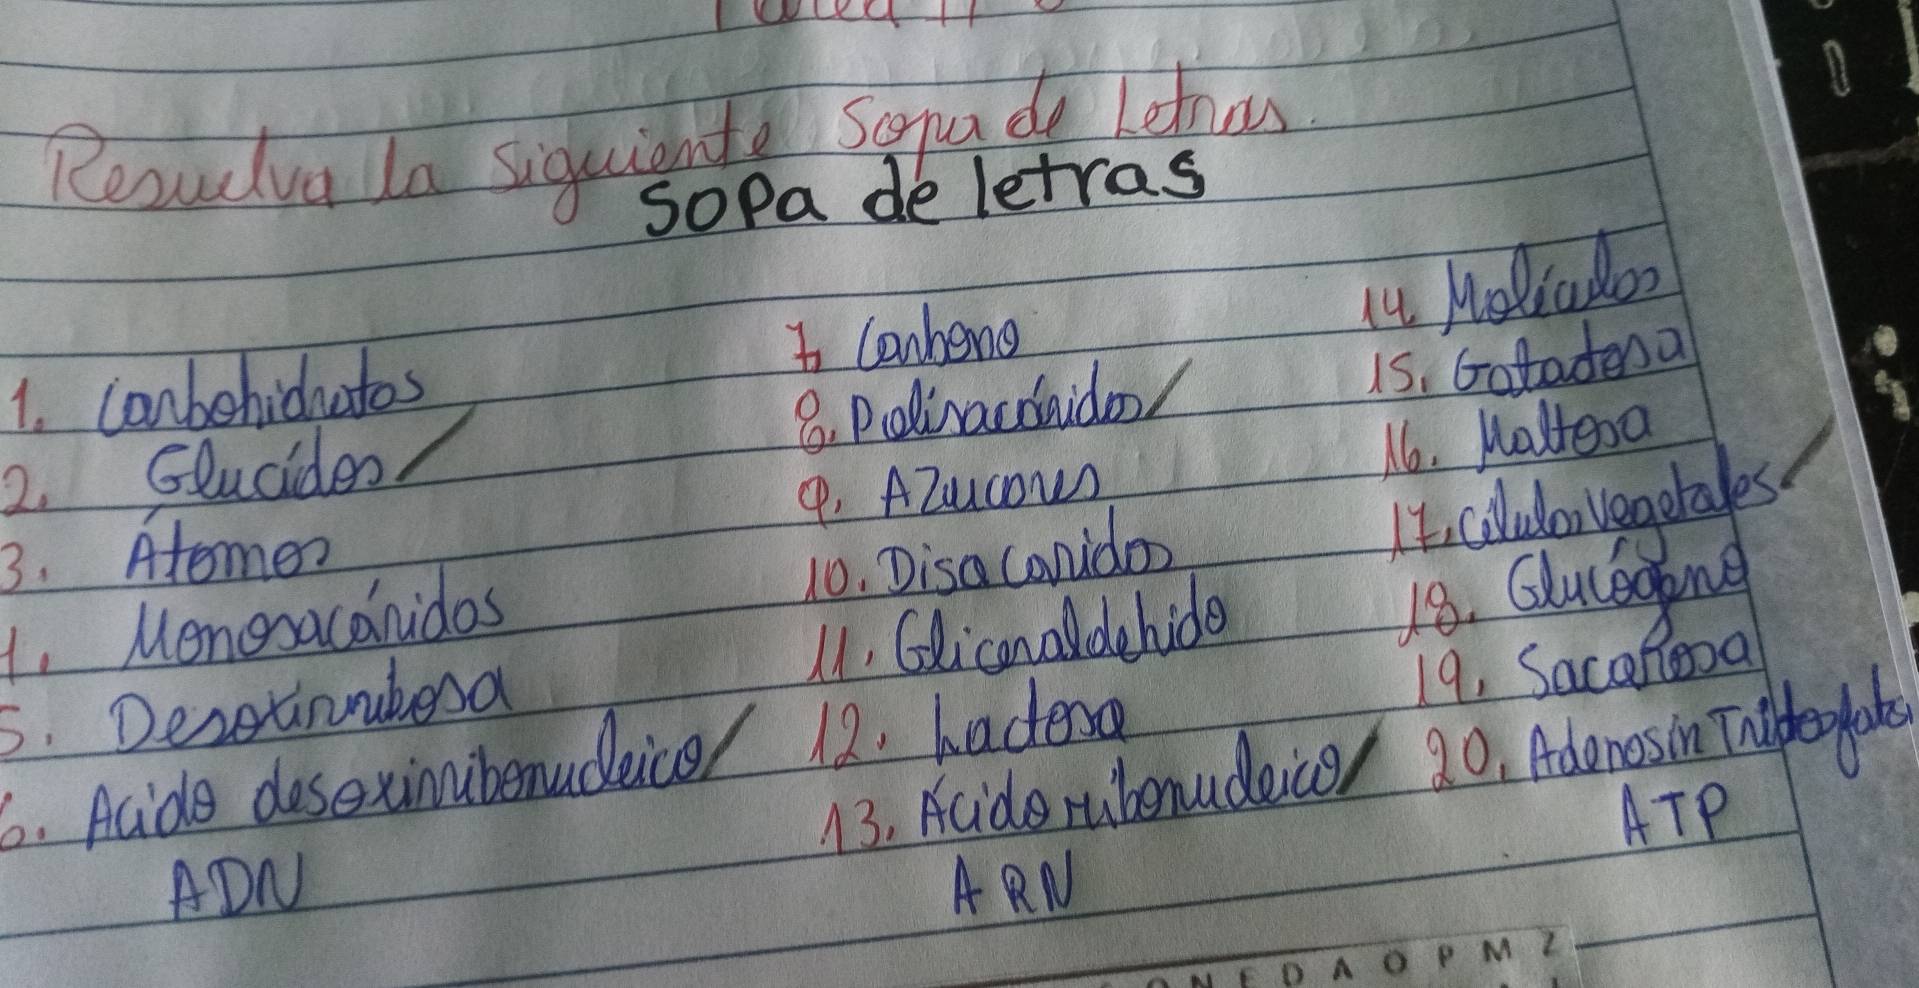 Tarea #
Resuelva la siguiente sopa de Letras.
Sopa de letras
1. Carbohidratos
2. Glucidos/
3. Átomos
4. Monosacáridos
5. Desoxirribosa
6. Acido desoxirribonucleico/
ADN
7. Carbono
8. Polisacáridos/
9. Azucares
10. Disacaridos
11. Gliceraldehido
12. Lactosa
13. Ácido ribonucleico/
ARN
14. Moléculas
15. Galactosa
16. Maltosa
17. Células vegetales/
18. Glucógeno
19. Sacarosa
20. Adenosin Trifosfato
ATP
D A O P M Z